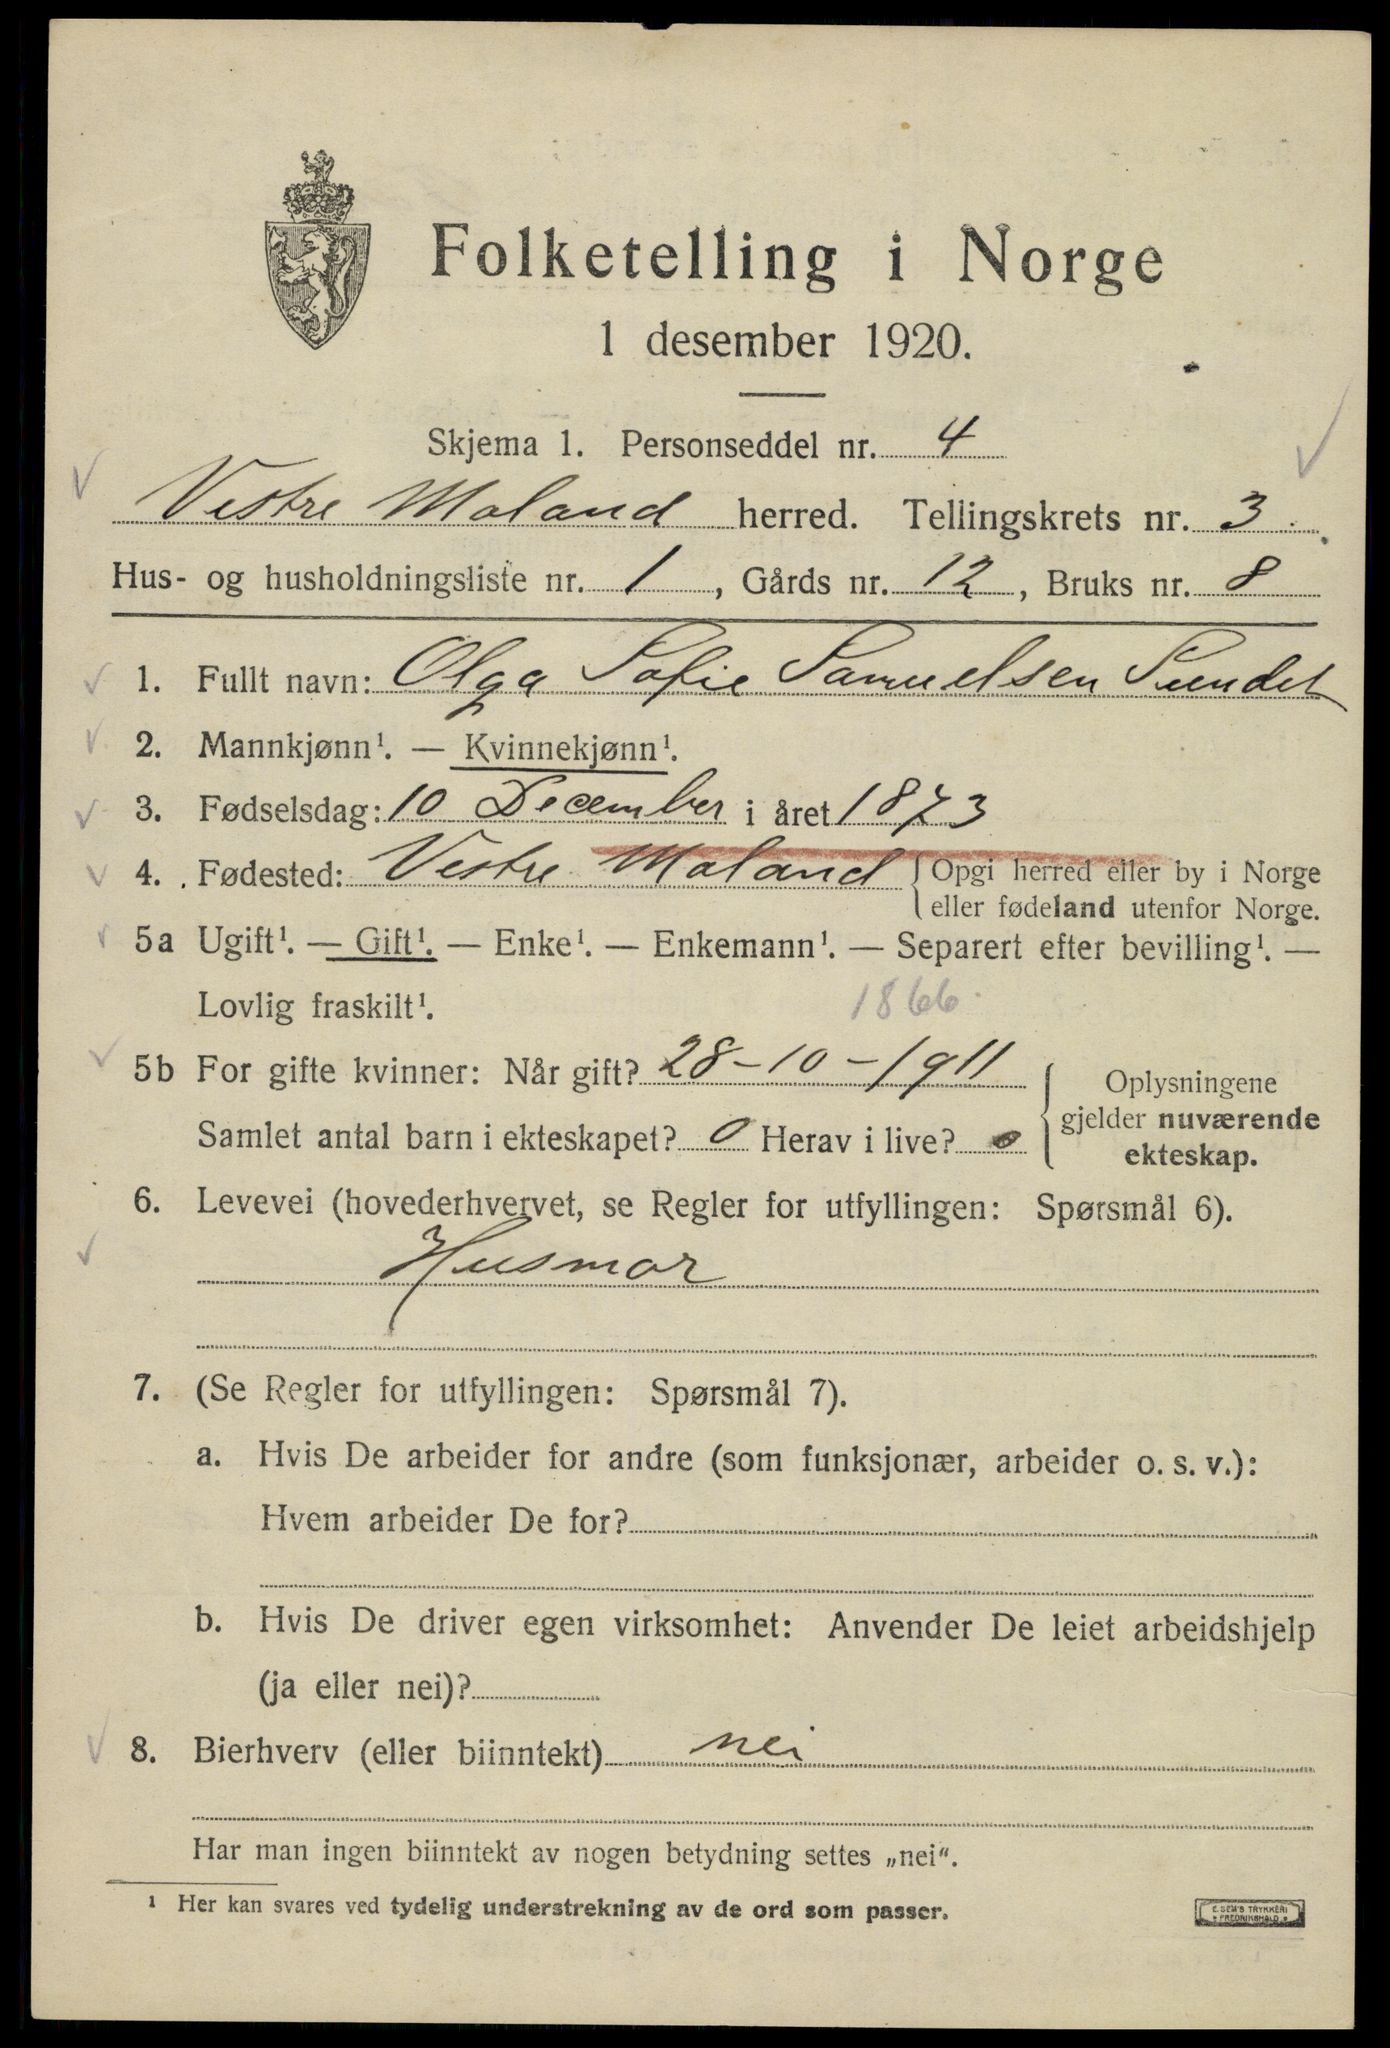 Folketelling i Norge
1 desember 1920.
Skjema 1. Personseddel nr. 4
Vestre Moland herred. Tellingskrets nr. 3.
Hus- og husholdningsliste nr. 1, Gårds nr. 12, Bruks nr. 8
1. Fullt navn: Olga Sofie Samuelsen Sundet
2. Mannkjønn¹. — Kvinnekjønn¹.
3. Fødselsdag: 10 December i året 1873
4. Fødested: Vestre Moland { Opgi herred eller by i Norge
eller fødeland utenfor Norge.
5a Ugift¹. — Gift¹. — Enke¹. — Enkemann¹. — Separert efter bevilling¹. —
Lovlig fraskilt¹. 1866
5b For gifte kvinner: Når gift? 28-10-1911
Samlet antal barn i ekteskapet? 0 Herav i live? 0
Oplysningene
gjelder nuværende
ekteskap.
6. Levevei (hovederhvervet, se Regler for utfyllingen: Spørsmål 6).
Husmor
7. (Se Regler for utfyllingen: Spørsmål 7).
a. Hvis De arbeider for andre (som funksjonær, arbeider o. s. v.):
Hvem arbeider De for?
b. Hvis De driver egen virksomhet: Anvender De leiet arbeidshjelp
(ja eller nei)?
8. Bierhverv (eller biinntekt) nei
Har man ingen biinntekt av nogen betydning settes „nei“.
¹ Her kan svares ved tydelig understrekning av de ord som passer.
E. SEM'S TRYKKERI
FREDRIKSHALD